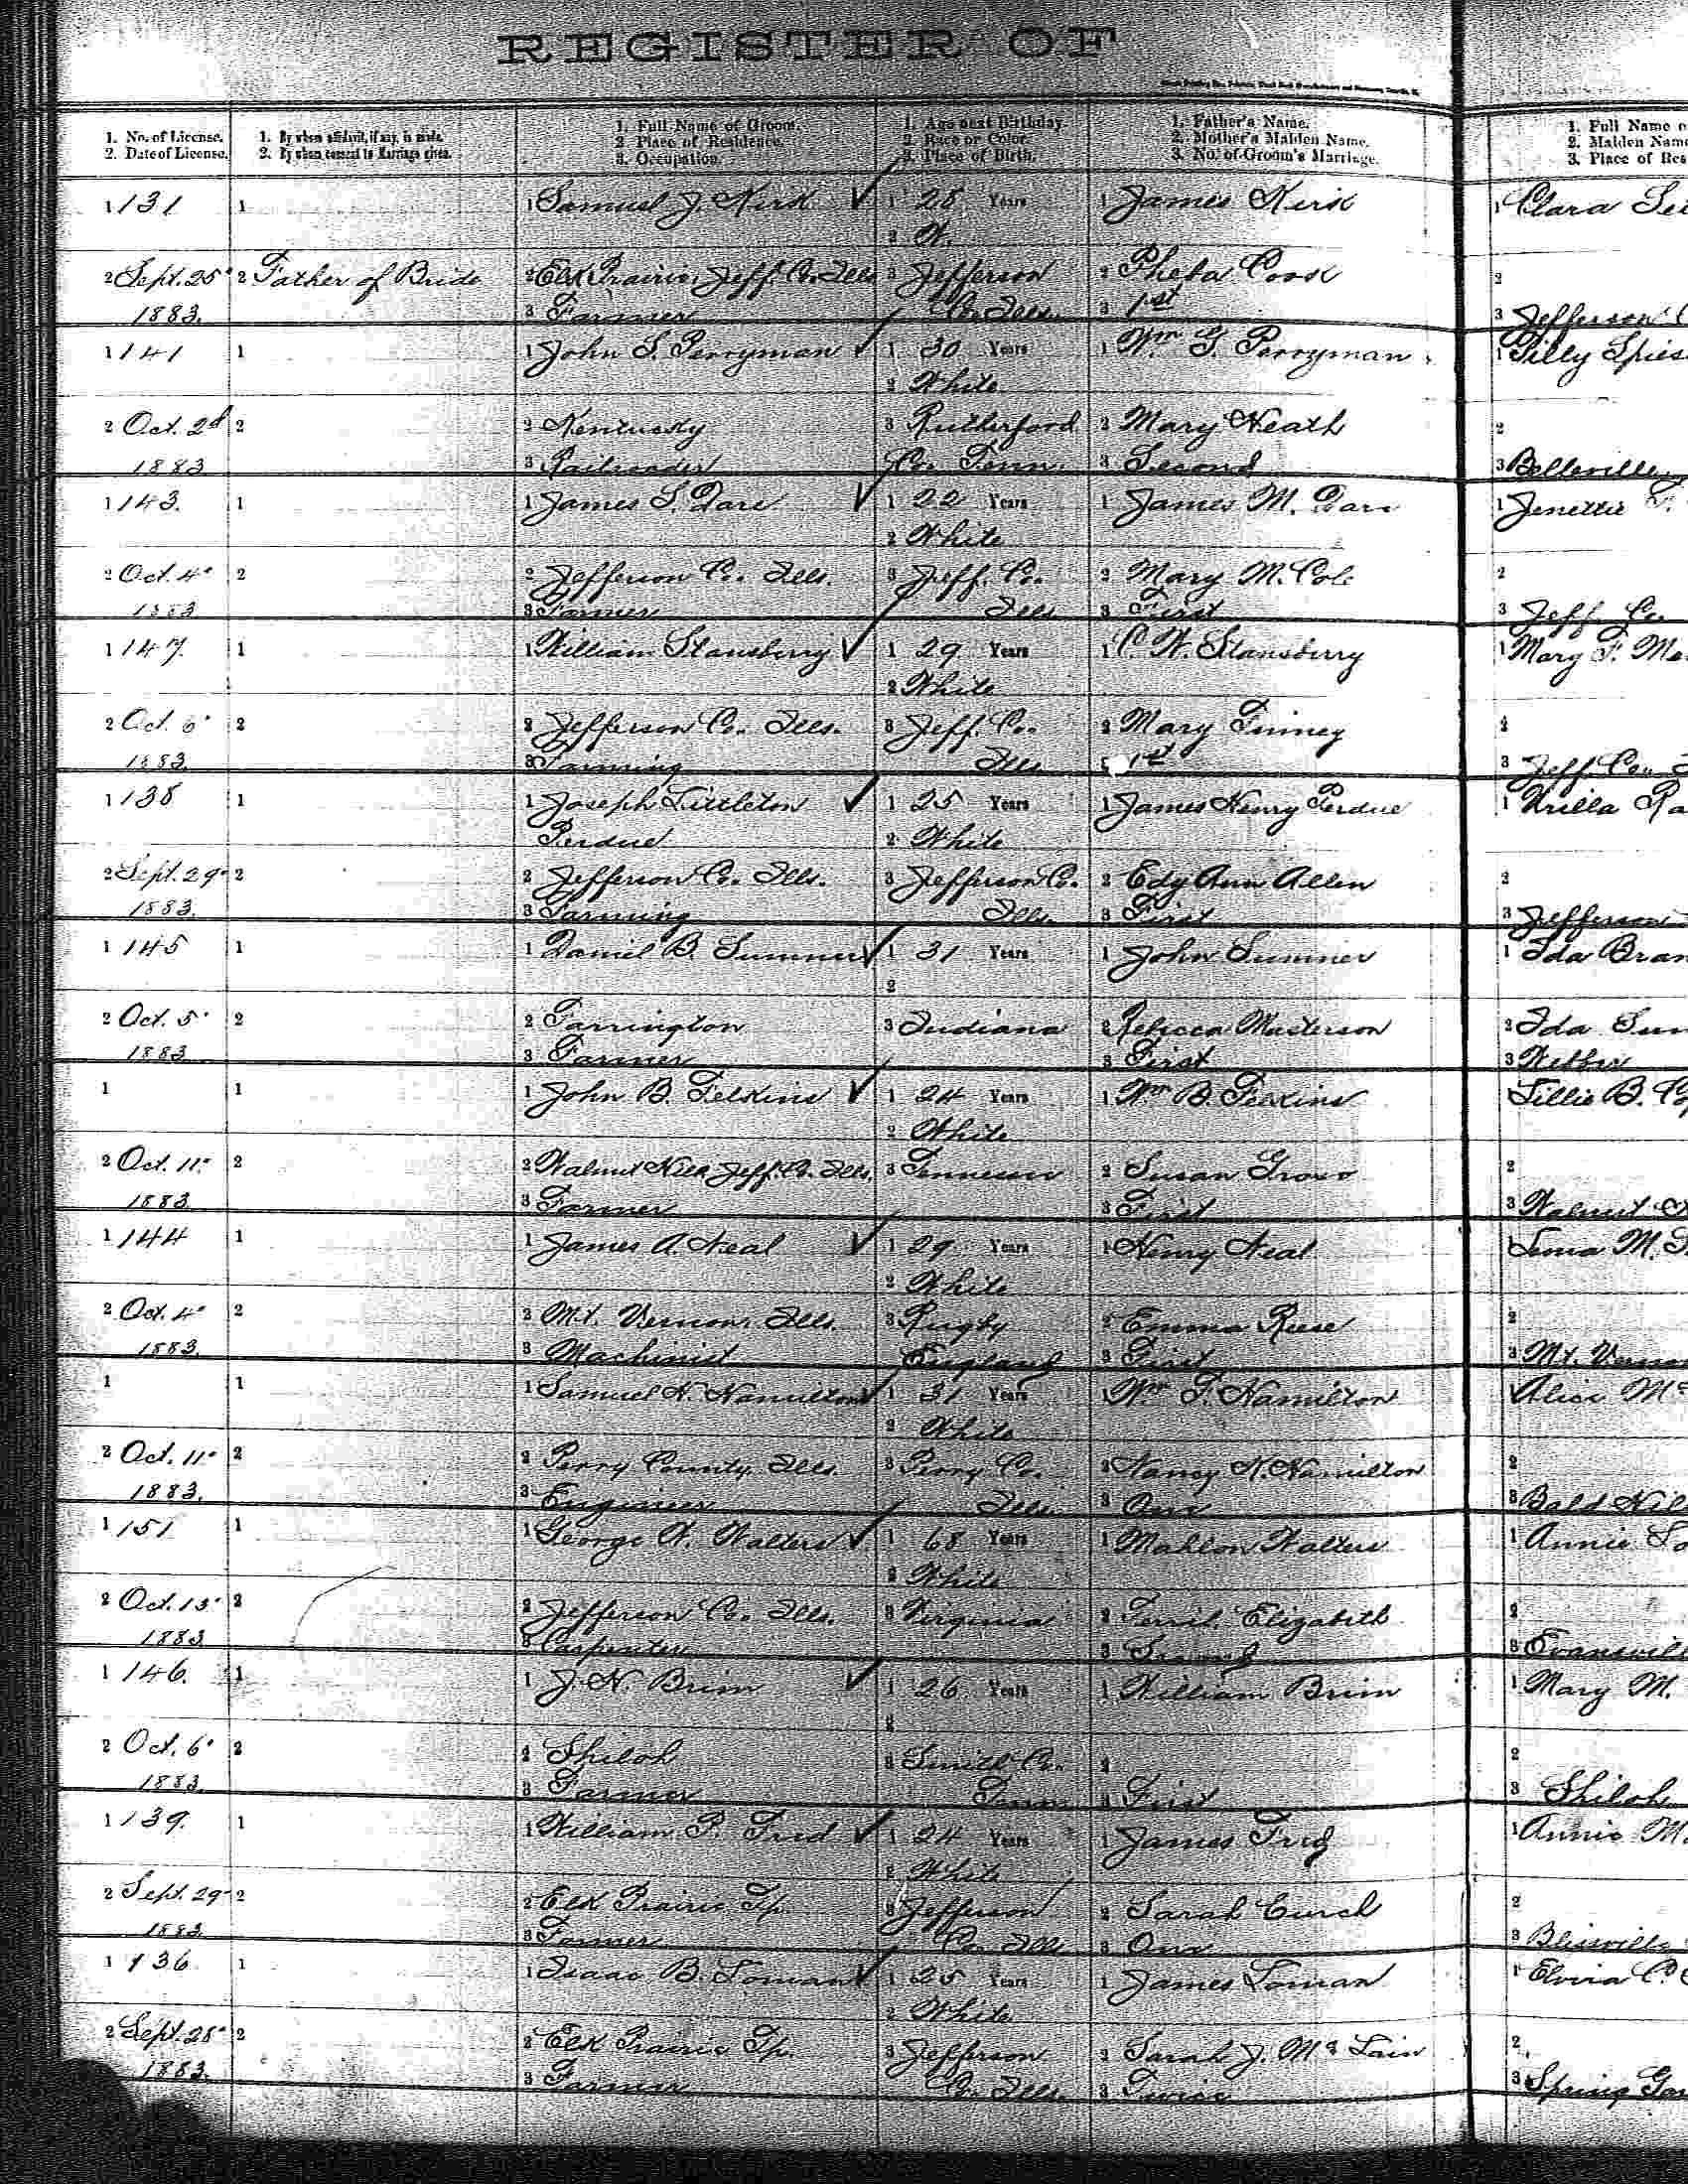 REGISTER OF
1. No. of License. 1. By whom affidavit, if any, is made. 1. Full Name of Groom. 1. Age next Birthday. 1. Father's Name. 1. Full Name o
2. Date of License. 2. By whom consent to Marriage given. 2. Place of Residence. 2. Race or Color. 2. Mother's Maiden Name. 2. Maiden Name
3. Occupation. 3. Place of Birth. 3. No. of Groom's Marriage. 3. Place of Res
1 131 1 1 Samuel J. Kirk 1 25 Years 1 James Kirk 1 Clara
2 W.
2 Sept. 25" 2 Father of Bride 2 Elk Prairie, Jeff. Co. Ills 3 Jefferson 2 Pheba Cook 2
1883. 3 Farmer Co. Ills. 3 1st 3 Jefferson
1 141 1 1 John S. Perryman 1 30 Years 1 Wm G. Perryman 1 Tilly Spies
2 White
2 Oct. 2d 2 2 Kentucky 3 Rutherford 2 Mary Heath 2
1883 3 Railroader Co. Tenn. 3 Second 3 Belleville
1 143. 1 1 James S. Dare 1 22 Years 1 James M. Dare 1 Jenettie
2 White
2 Oct. 4" 2 2 Jefferson Co. Ills. 3 Jeff. Co. 2 Mary M. Cole 2
1883 3 Farmer Ills. 3 First 3 Jeff. Co.
1 147 1 1 William Stansberry 1 29 Years 1 P. W. Stansberry 1 Mary F.
2 White
2 Oct. 6" 2 2 Jefferson Co. Ills. 3 Jeff. Co. 2 Mary Finney 2
1883. 3 Farming Ills. 1st 3 Jeff. Co.
1 138 1 1 Joseph Littleton 1 25 Years 1 James Henry Perdue 1 Urilla
Perdue 2 White
2 Sept. 29" 2 2 Jefferson Co. Ills. 3 Jefferson Co. 2 Edy Ann Allen 2
1883. 3 Farming Ills. 3 First 3 Jefferson
1 145 1 1 Daniel B. Sumner 1 31 Years 1 John Sumner 1 Ida Bran
2
2 Oct. 5" 2 2 Farrington 3 Indiana 2 Rebecca Masterson 2 Ida Sum
1883 3 Farmer 3 First 3 Webber
1 1 1 John B. Felskins 1 24 Years 1 Wm B. Felskins Lillie B.
2 White
2 Oct. 11" 2 2 Walnut Hill, Jeff. Co. Ills. 3 Tennessee 2 Susan 2
1883. 3 Farmer 3 First 3 Walnut
1 144 1 1 James A. Neal 1 29 Years 1 Henry Neal M.
2 White
2 Oct. 4" 2 2 Mt. Vernon, Ills. 3 Rugby 2 Emma Reese 2
1883. 3 Machinist England 3 First 3 Mt. Vernon
1 1 1 Samuel H. Hamilton 1 31 Years 1 Wm F. Hamilton Alice Mc
2 White
2 Oct. 11" 2 2 Perry County, Ills. 3 Perry Co. 2 Nancy H. Hamilton 2
1883. 3 Engineer Ills. 3 One 3 Bald Hil
1 151 1 1 George W. Walters 1 68 Years 1 Mahlon Walters 1 Annie
2 White
2 Oct. 13" 2 2 Jefferson Co. Ills. 3 Virginia 2 Terril Elizabeth 2
1883 3 Carpenter 3 Second 3 Evansvill
1 146. 1 1 J. H. Brim 1 26 Years 1 William Brim 1 Mary M.
2
2 Oct. 6" 2 2 Shiloh 3 Smith Co. 2 2
1883. 3 Farmer Tenn 3 First 3 Shiloh
1 139. 1 1 William P. Fred 1 24 Years 1 James Fred 1 Annie M.
2 White
2 Sept. 29" 2 2 Elk Prairie Tp. 3 Jefferson 2 Sarah 2
1883 3 Farmer Co. Ills 3 One 3 Blissville
1 136 1 1 Isaac B. Loman 1 25 Years 1 James Loman 1 Elvira C.
2 White
2 Sept. 28" 2 2 Elk Prairie Tp. 3 Jefferson 2 Sarah J. McLain 2
1883. 3 Farmer Co. Ills. 3 Twice 3 Spring Gar